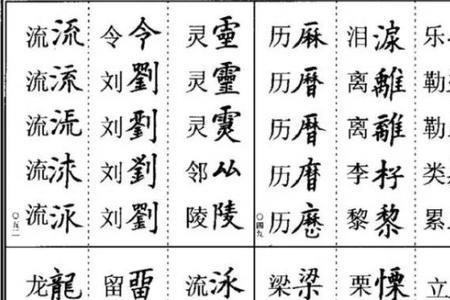 流流 令令 灵靈 历厤 泪淚 乐
流流 刘劉 灵靈 历曆 离離 勒
流 刘劉 灵 历曆 离離 勒
流 刘劉 邻厸 历 李杍 类
流 刘劉 陵陵 历歷 黎黎 累
〇五二 〇四九
龙龍 留畱 流 梁梁 栗慄 立